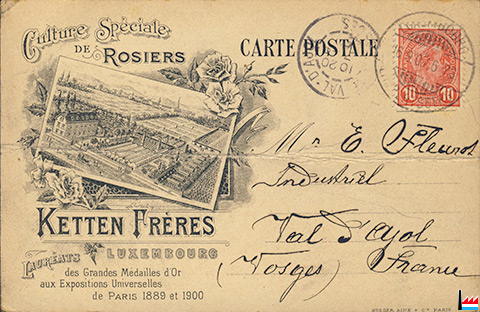 Culture Spéciale
DE
ROSIERS
CARTE POSTALE
10 10
VAL-D'A
KETTEN FRÈRES
LUXEMBOURG
LAURÉATS
des Grandes Médailles d'Or
aux Expositions Universelles
de PARIS 1889 et 1900
Mr E. Fleurot
Industriel
Val d'Ajol
(Vosges) France
PARIS